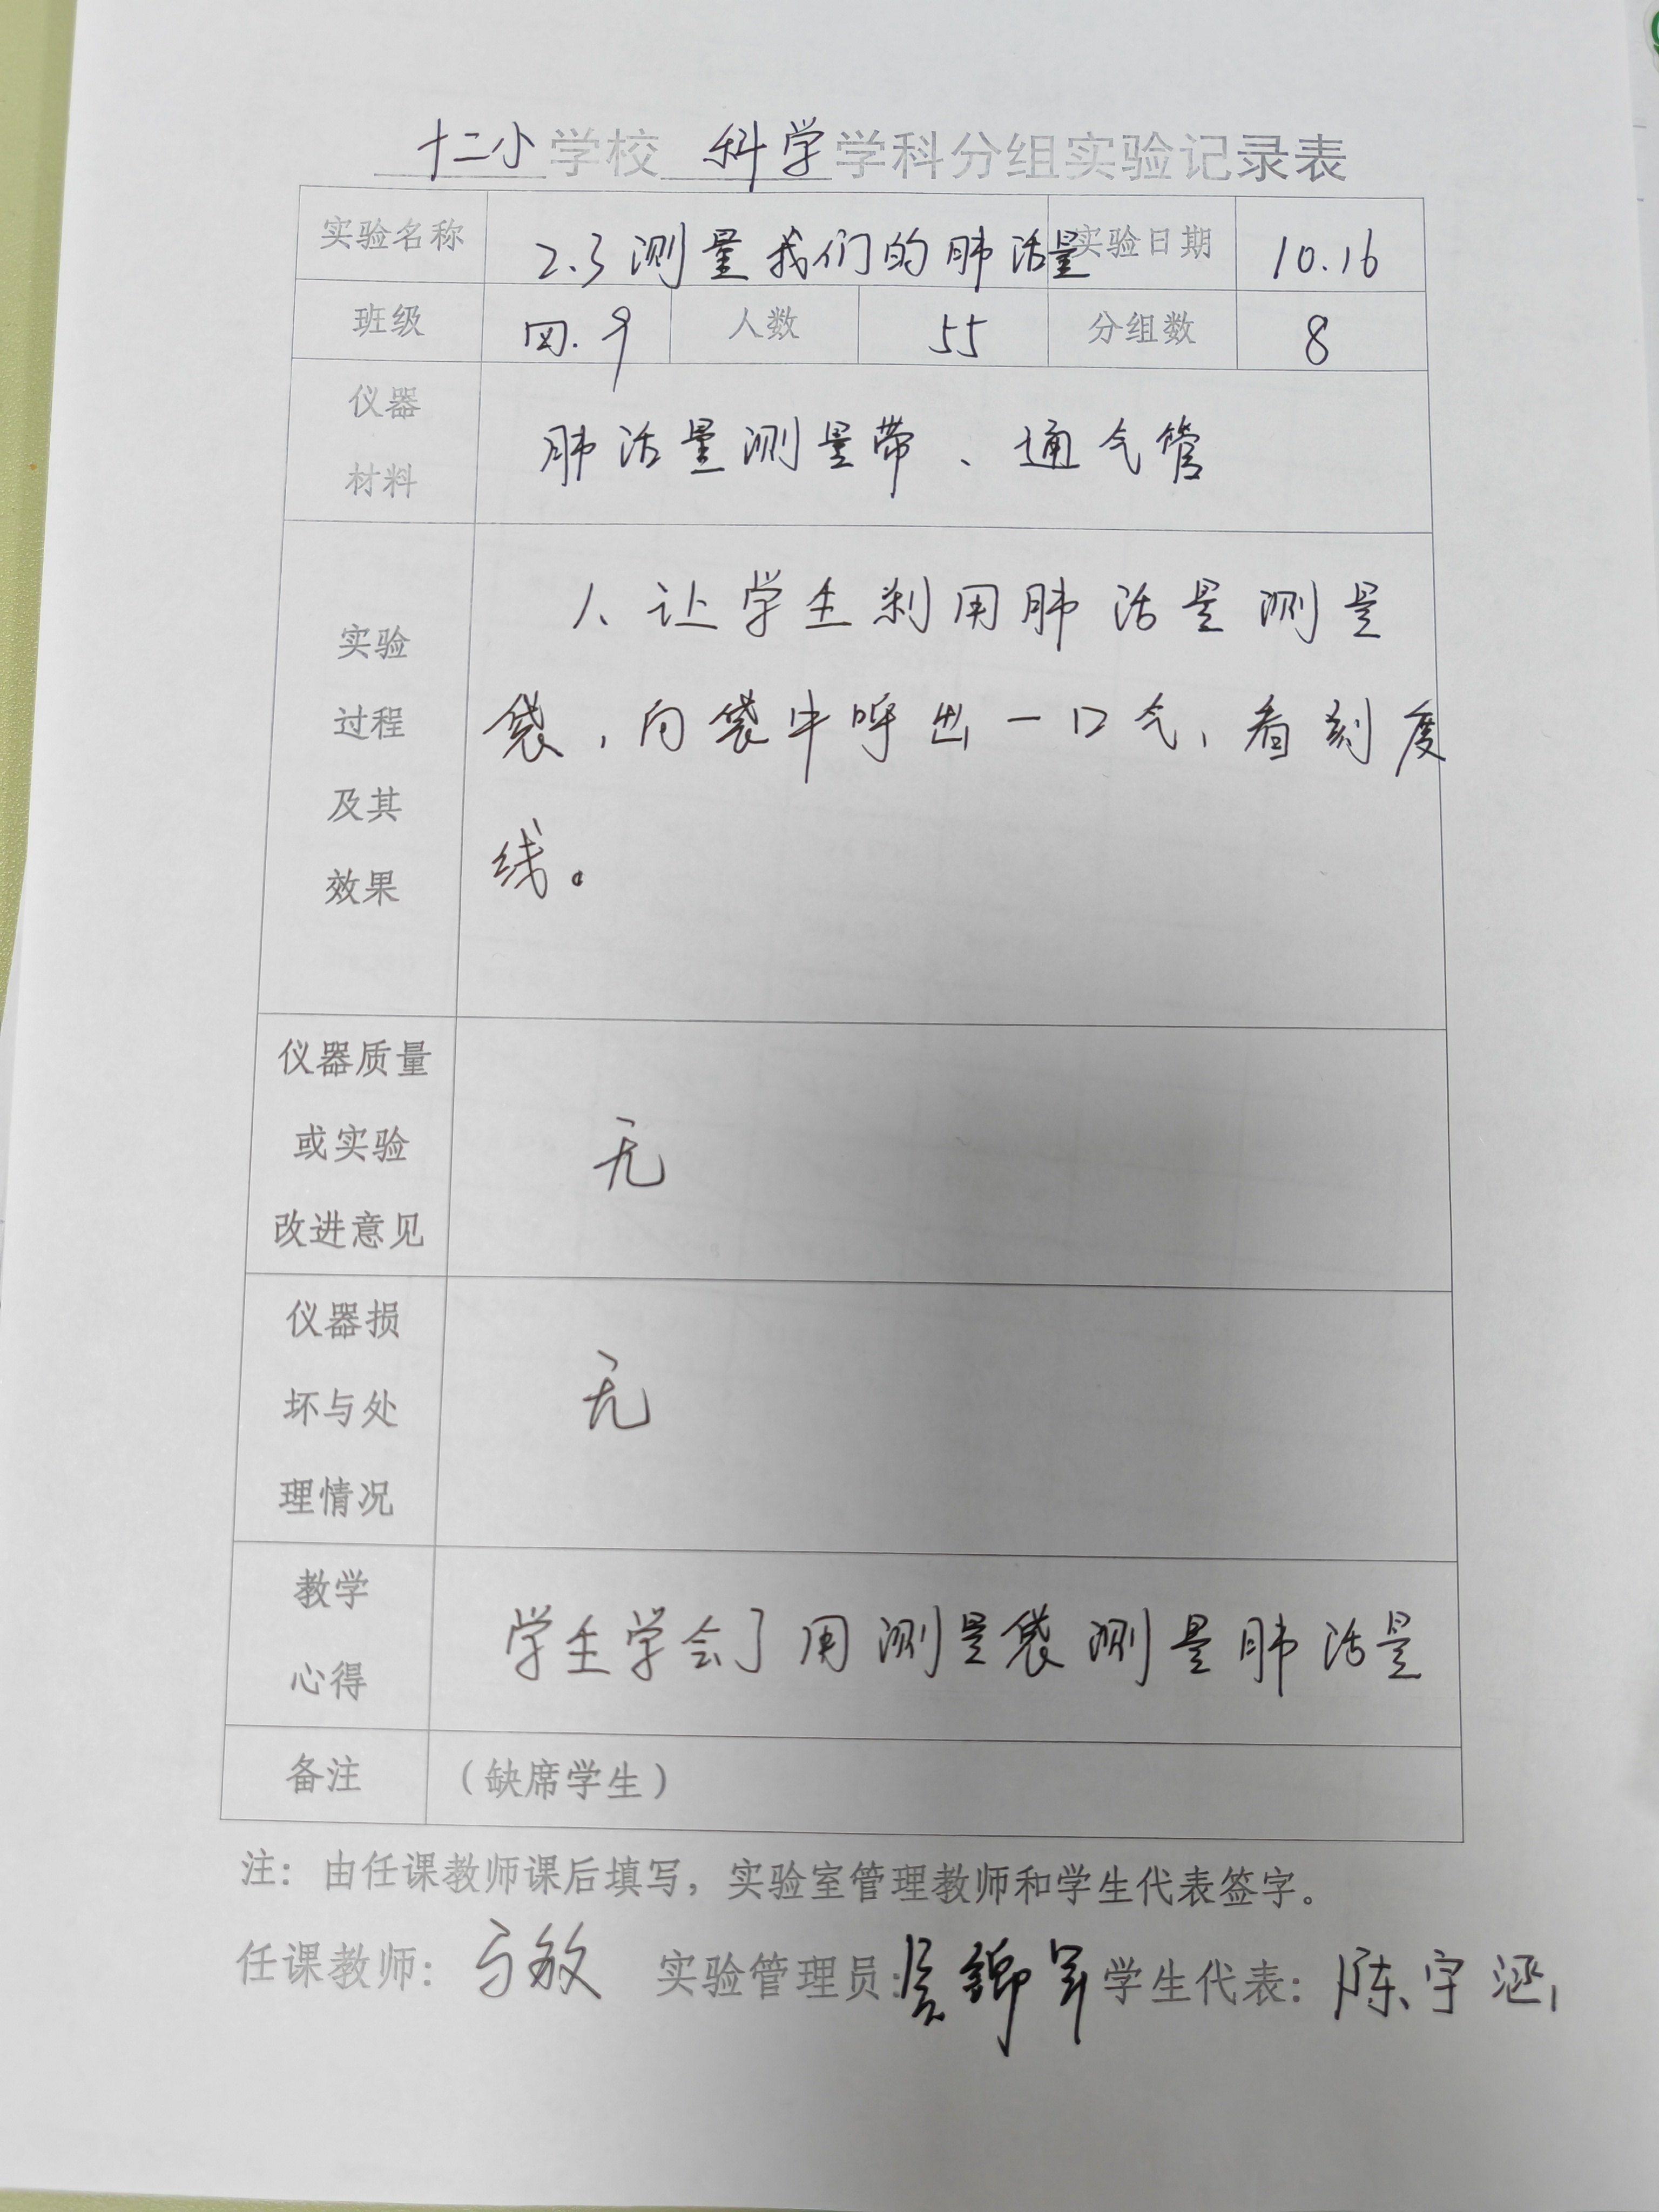 十二小学校 科学学科分组实验记录表
实验名称 2.3测量我们的肺活量 实验日期 10.16
班级 四.9 人数 55 分组数 8
仪器
材料
肺活量测量带、通气管
实验
过程
及其
效果
1、让学生利用肺活量测量
袋,向袋中呼出一口气,看刻度
线。
仪器质量
或实验
改进意见
无
仪器损
坏与处
理情况
无
教学
心得
学生学会了用测量袋测量肺活量
备注 (缺席学生)
注:由任课教师课后填写,实验室管理教师和学生代表签字。
任课教师:马敏 实验管理员: 学生代表:陈宇涵